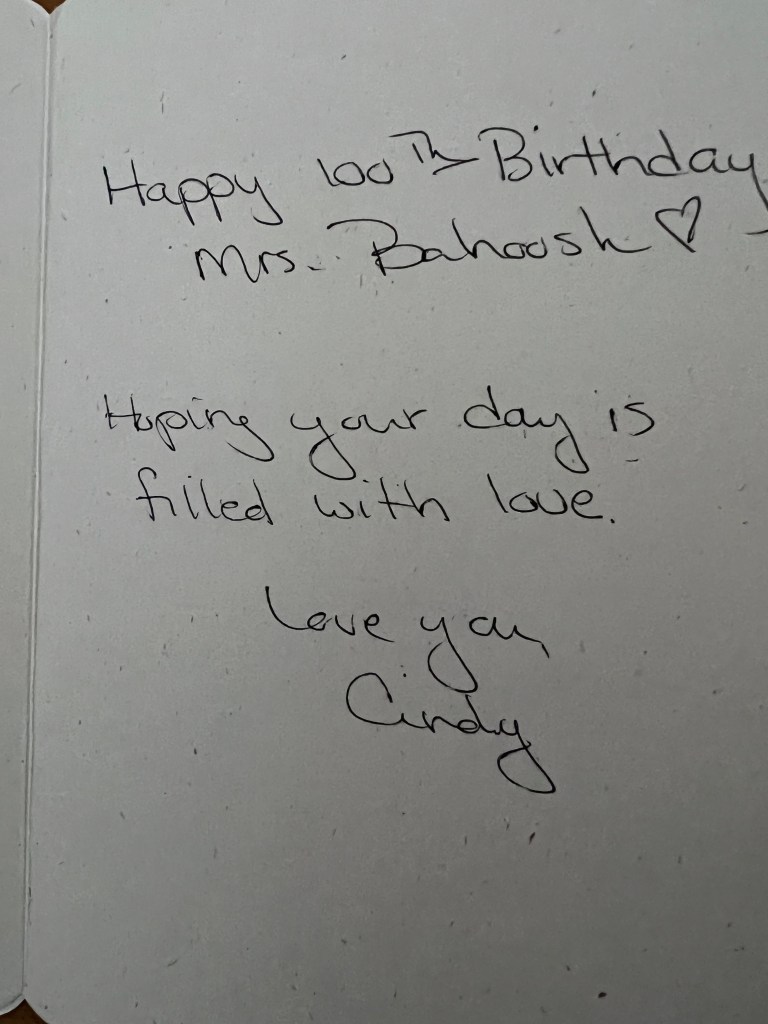 Happy 100Th Birthday
Mrs. Bahoosh ♡
Hoping your day is
filled with love.
Love you,
Cindy